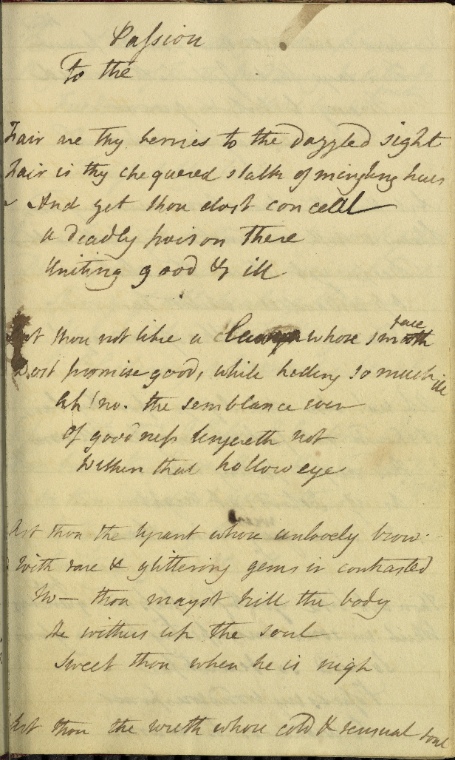 Passion
To the
Fair are thy berries to the dazzled sight
Fair is thy chequered stalk of mingling hues
And yet thou dost conceal
a deadly poison there
Uniting good & ill
Art thou not like a whose face smooth
Dost promise good, while hiding so much ill
Ah! no. the semblance even
Of goodness lingereth not
Within that hollow eye
Art thou the tyrant whose unlovely brow
With rare & glittering gems is contrasted
No — thou mayst kill the body
He withers up the soul
Sweet thou when he is nigh
Art thou the wreth whose cold & sensual soul